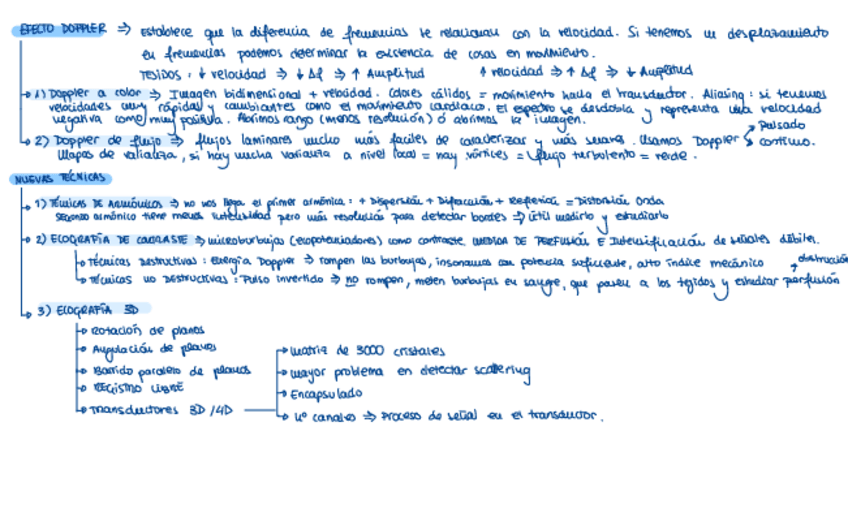 EFECTO DOPPLER ⇒ Establece que la diferencia de frecuencias se relacionan con la velocidad. Si tenemos un desplazamiento
en frecuencias podemos determinar la existencia de cosas en movimiento.
TEJIDOS: ↓ velocidad ⇒ ↓ Δf ⇒ ↑ Amplitud ↑ velocidad ⇒ ↑ Δf ⇒ ↓ Amplitud
1) Doppler a color ⇒ Imagen bidimensional + velocidad. Colores cálidos = movimiento hacia el transductor. Aliasing: si tenemos
velocidades muy rápidas y cambiantes como el movimiento cardíaco. El espectro se desdobla y representa una velocidad
negativa como muy positiva. Abrimos rango (menos resolución) ó abrimos la imagen.
2) Doppler de flujo ⇒ flujos laminares mucho más faciles de caracterizar y más suaves. Usamos Doppler Pulsado
continuo.
Mapas de varianza, si hay mucha varianza a nivel local = hay vórtices = flujo turbulento = verde.
NUEVAS TÉCNICAS
1) TÉCNICAS DE ARMÓNICOS ⇒ no nos llega el primer armónico: + Dispersión + Difracción + Reflexión = Distorsión Onda
SEGUNDO armónico tiene menos intensidad pero más resolución para detectar bordes ⇒ útil medirlo y estudiarlo
2) ECOGRAFÍA DE CONTRASTE ⇒ microburbujas (ecopotenciadores) como contraste. MEDIDA DE PERFUSIÓN E Intensificación de señales débiles.
TÉCNICAS DESTRUCTIVAS: Energía Doppler ⇒ rompen las burbujas, insonamos con potencia suficiente, alto índice mecánico → destrucción
TÉCNICAS NO DESTRUCTIVAS: Pulso invertido ⇒ no rompen, meten burbujas en sangre, que pasen a los tejidos y estudiar perfusión
3) ECOGRAFÍA 3D
Rotación de planos
Angulación de planos
Barrido paralelo de planos
REGISTRO LIBRE
Transductores 3D/4D
Matriz de 3000 cristales
Mayor problema en detectar scattering
Encapsulado
Nº canales ⇒ Proceso de señal en el transductor.